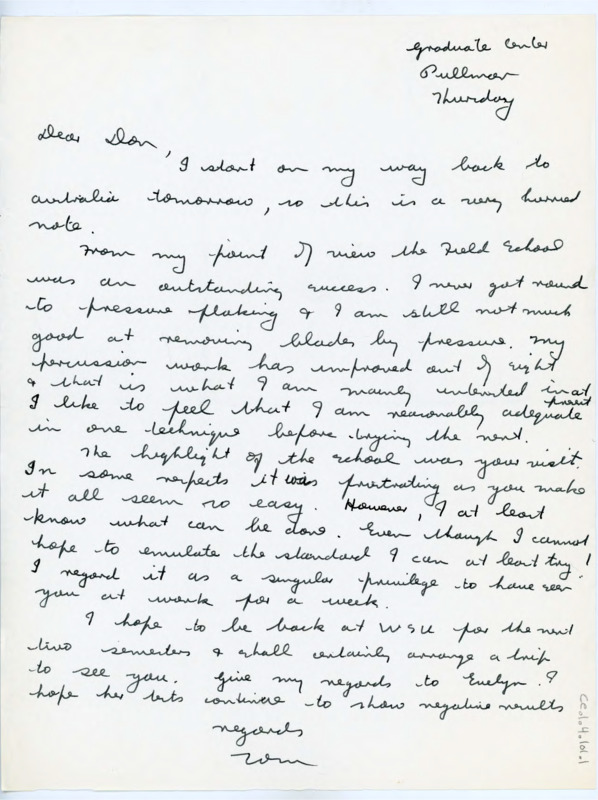 Graduate Center
Pullman
Thursday
Dear Don,
I start on my way back to
Australia tomorrow, so this is a very hurried
note.
From my point of view the Field School
was an outstanding success. I never got round
to pressure flaking & I am still not much
good at removing blades by pressure. My
percussion work has improved out of sight
& that is what I am mainly interested in at
present
I like to feel that I am reasonably adequate
in one technique before trying the next.
The highlight of the school was your visit.
In some respects it was frustrating as you make
it all seem so easy. However, I at least
know what can be done. Even though I cannot
hope to emulate the standard I can at least try!
I regard it as a singular privilege to have seen
you at work for a week.
I hope to be back at WSU for the next
two semesters & shall certainly arrange a trip
to see you. Give my regards to Evelyn. I
hope her tests continue to show negative results
regards
Tom